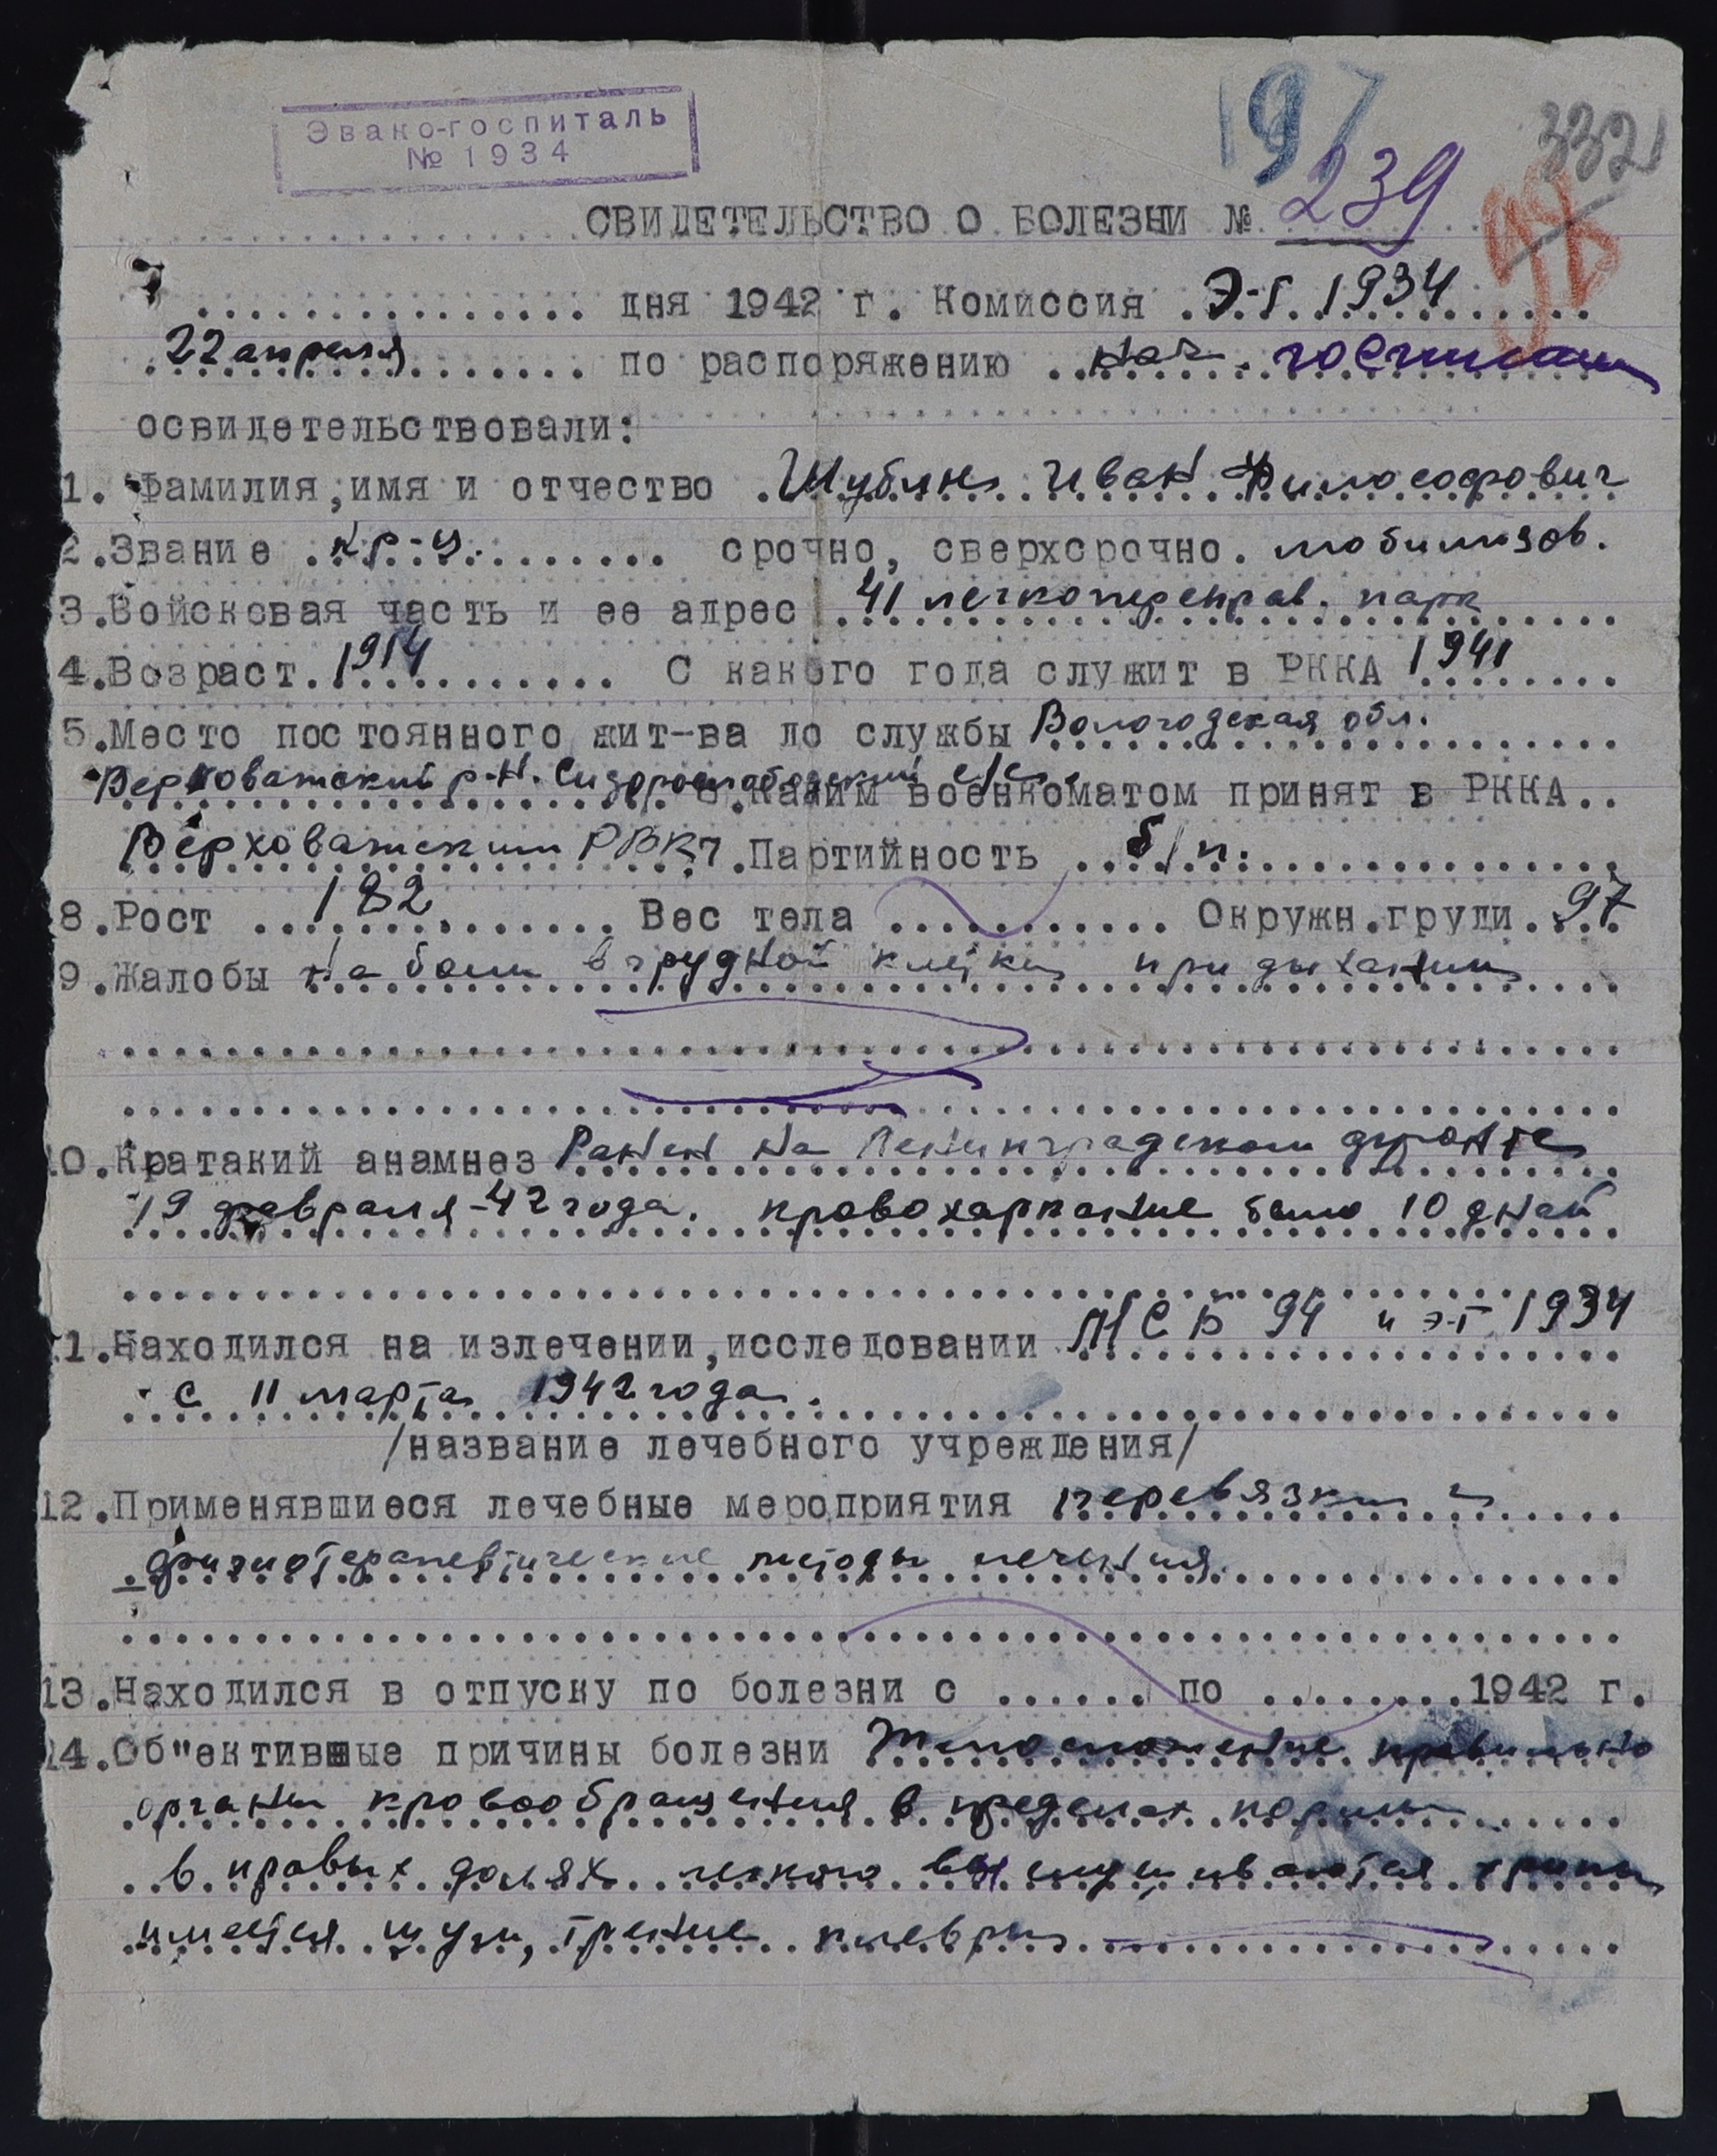 Эвако-госпиталь
№ 1934
197
332
98
СВИДЕТЕЛЬСТВО О БОЛЕЗНИ № 239
дня 1942 г. Комиссия Э-Г 1934
22 апреля по распоряжению нач. госпиталя
освидетельствовали:
1. Фамилия, имя и отчество Шубин Иван Философович
2. Звание кр-ц. срочно, сверхсрочно. мобилизов.
3. Войсковая часть и ее адрес 41 легкопереправ. парк
4. Возраст 1914 С какого года служит в РККА 1941
5. Место постоянного жит-ва до службы Вологодская обл.
Верховажский р-н. Сидорослободский с/с. 6. Каким военкоматом принят в РККА..
Верховажским РВК 7. Партийность б/п.
8. Рост 182 Вес тела Окружн. груди 97
9. Жалобы на боли в грудной клетке при дыхании
10. Кратакий анамнез Ранен на Ленинградском фронте
19 февраля-42 года. кровохаркание было 10 дней
11. Находился на излечении, исследовании МСБ 94 и Э-Г 1934
с 11 марта 1942 года.
/название лечебного учреждения/
12. Применявшиеся лечебные мероприятия перевязки и
физиотерапевтические методы лечения.
13. Находился в отпуску по болезни с ...... по ........ 1942 г.
14. Об"ективные причины болезни Телосложение правильно
органы кровообращения в пределах нормы
в правых долях легкого выслушиваются хрипы
имеется шум, трение плевры